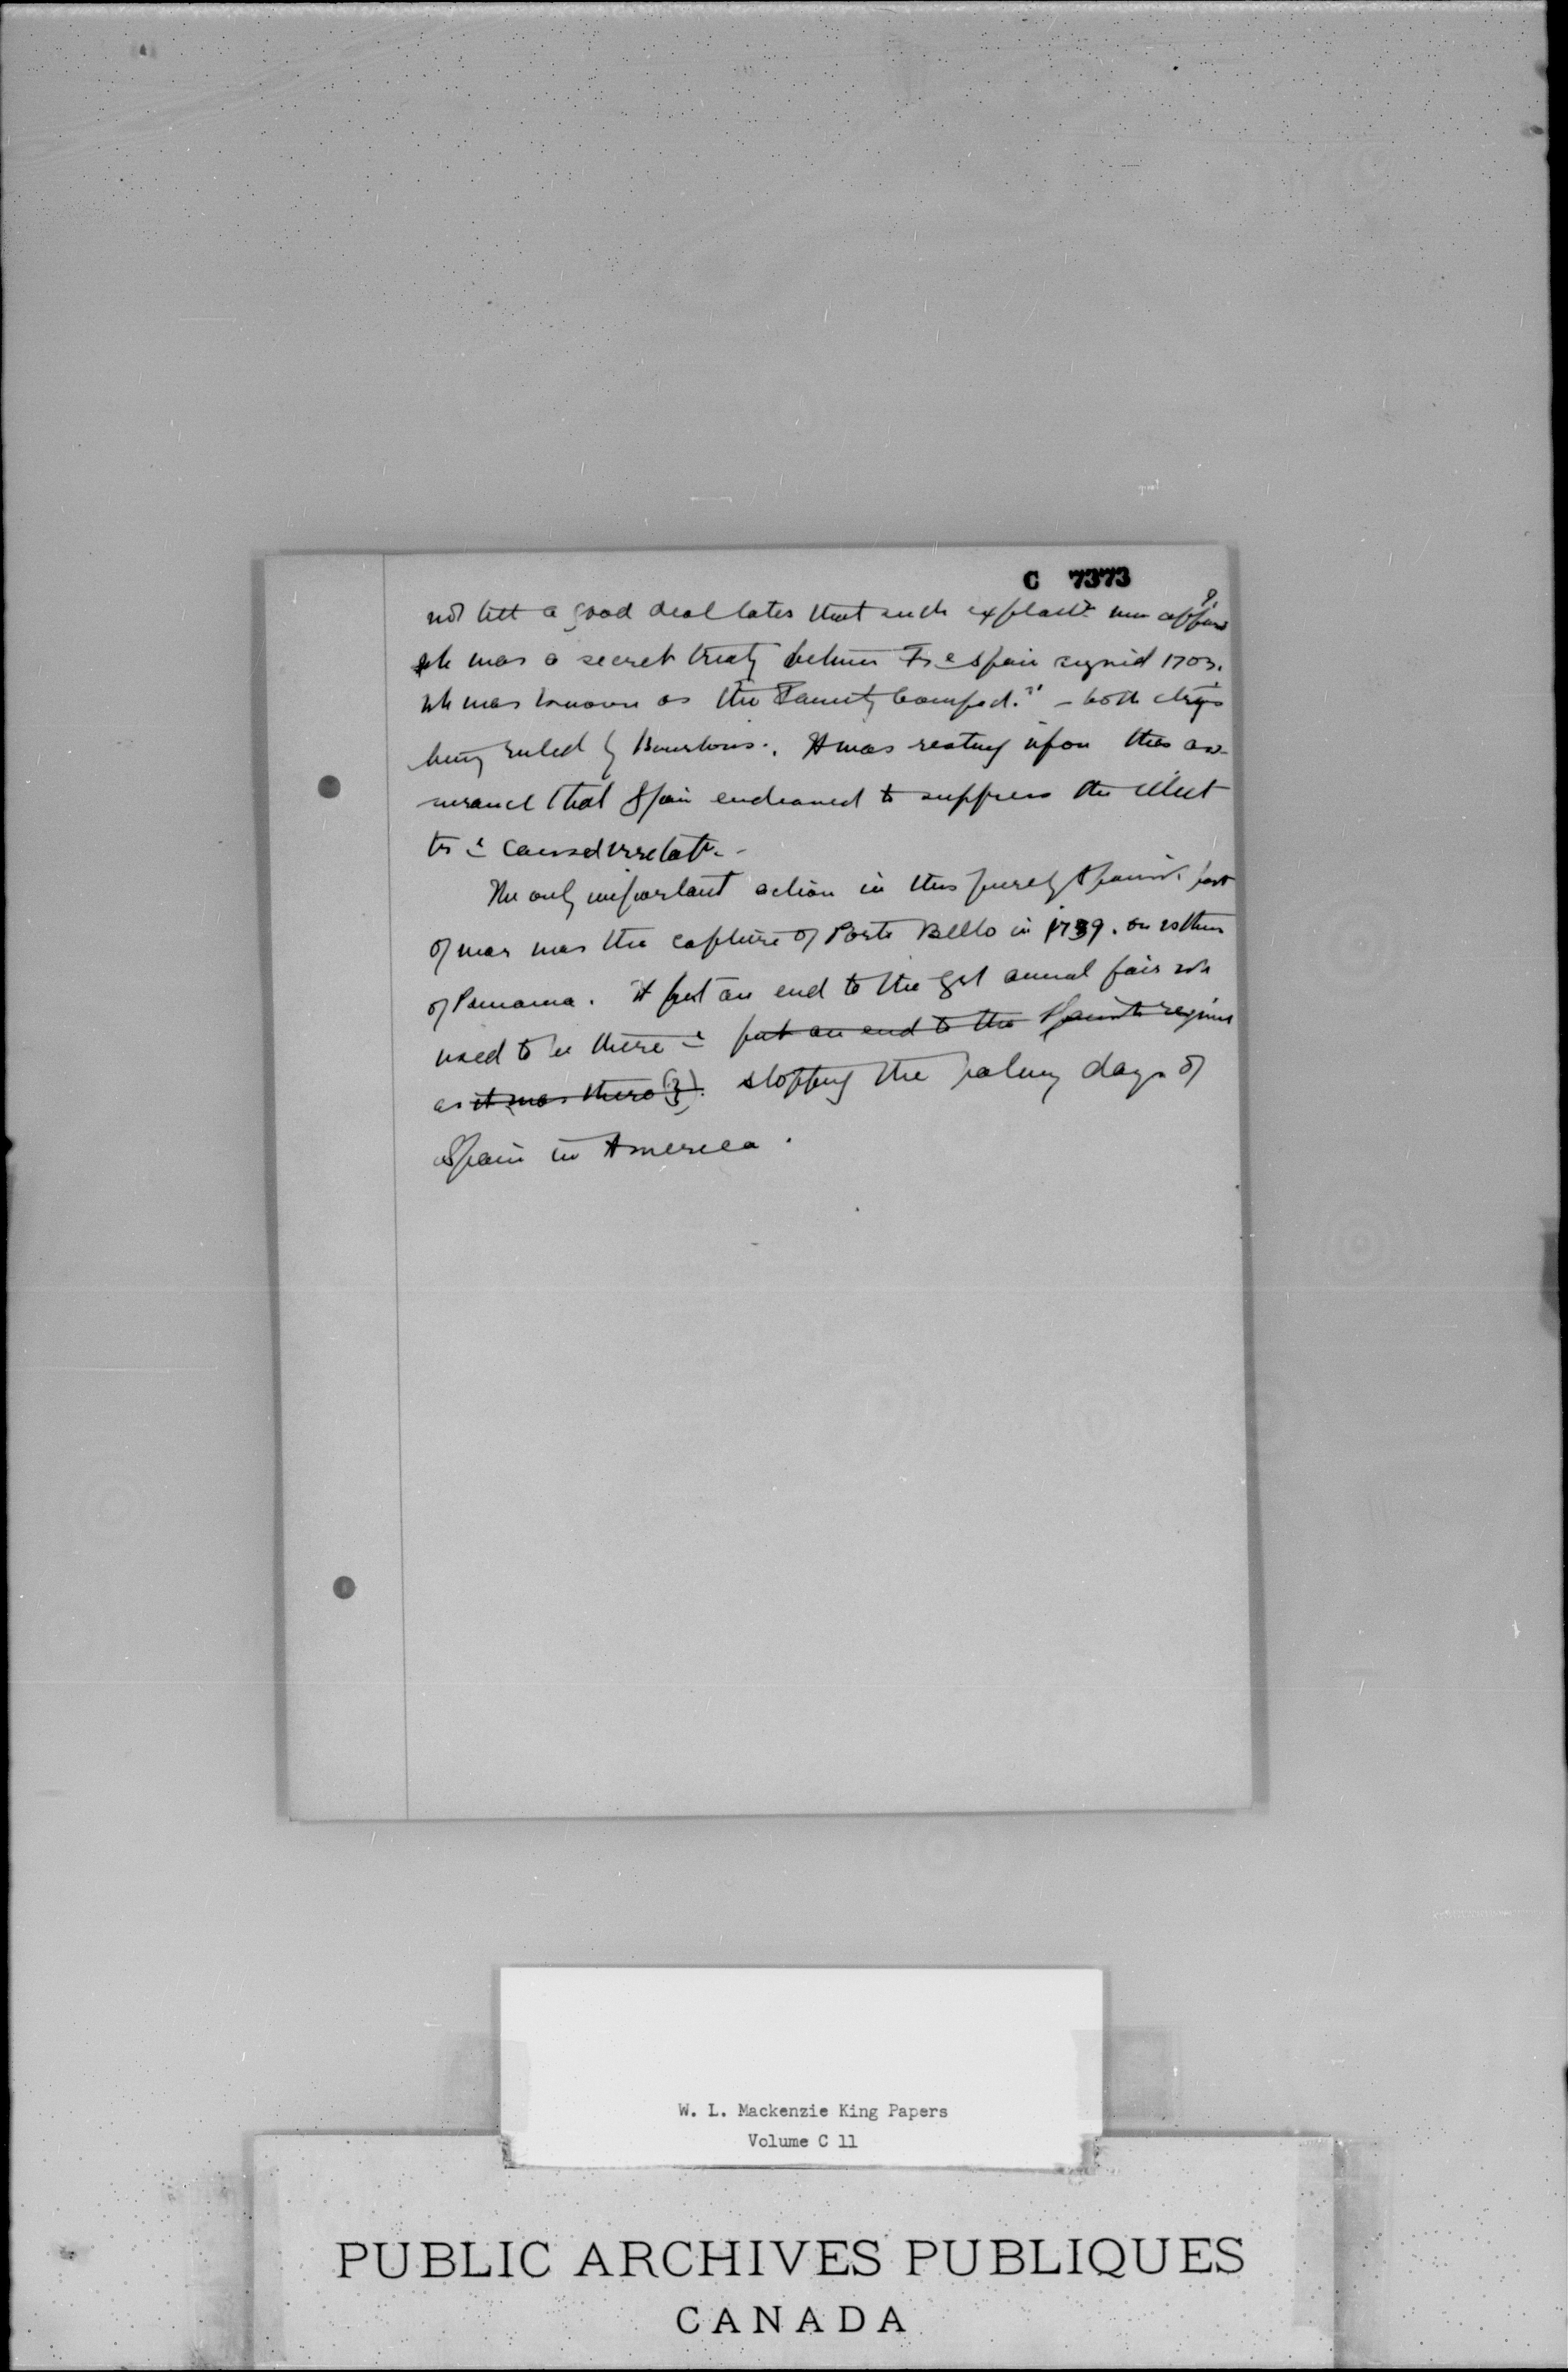 C 7373
not till a good deal later that such explantn was
wh was a secret treaty between Fr & Spain signed 1703.
wh was known as the "Family Compact." – both ctrys
being ruled by Bourbons. It was resting upon this as-
surance that Spain endeavored to suppress the illicit
tr & caused irrelatn. -
The only important action in this purely Spanish part
of war was the capture of Porto Bello in 1739. on isthmus
of Panama. It put an end to the grt annual fair wh
used to be there & put an end to the Spanish regime
as it was there (?). stopping the palmy days of
Spain in America.
W. L. Mackenzie King Papers
Volume C 11
PUBLIC ARCHIVES PUBLIQUES
CANADA